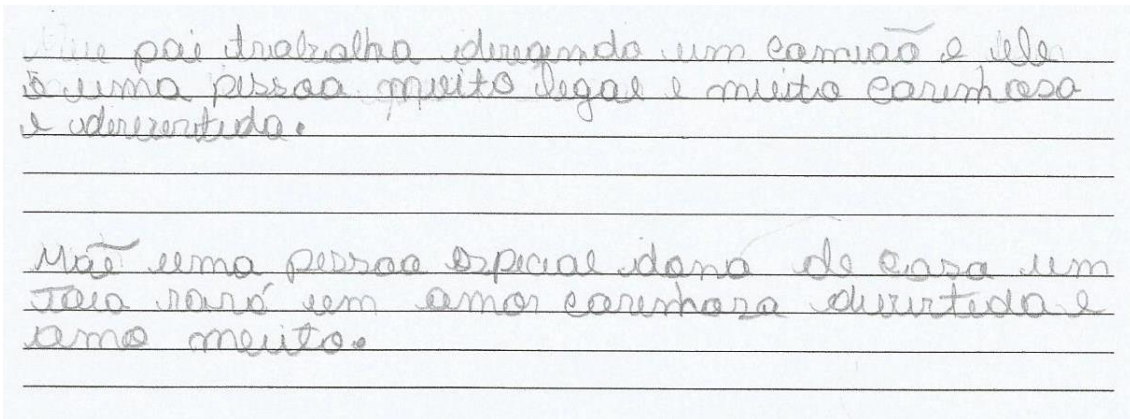 Meu pai trabalha dirigindo um camião e ele
é uma pessoa muito legal e muito carinhosa
e
Mãe uma pessoa especial dona de casa um
Joia raró um amor carinhosa divirtida e
amo muito.